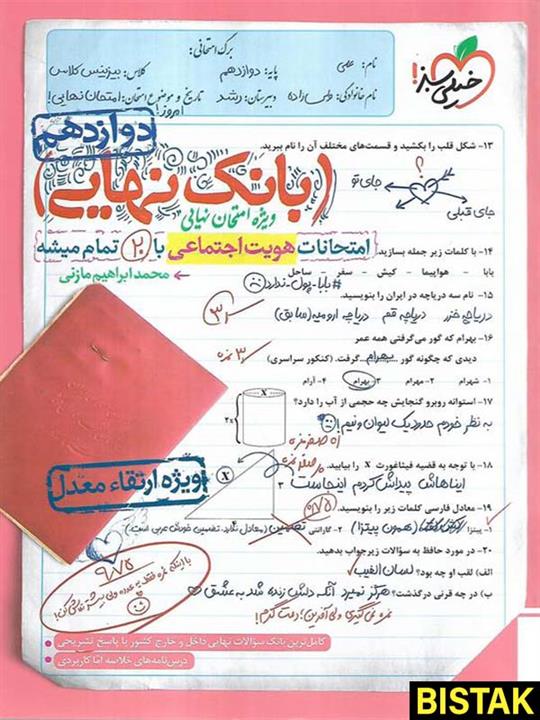 برگ امتحانی:
خیلی سبز!
نام: علی
پایه: دوازدهم
کلاس: بیزینس کلاس
نام خانوادگی: ولی زاده
دبیرستان: رشد
تاریخ و موضوع امتحان: امتحان نهایی!
امروز!
دوازدهم
۱۳- شکل قلب را بکشید و قسمت‌های مختلف آن را نام ببرید.
؟
جای تو
جای قبلی
(بانک نهایی)
ویژه امتحان نهایی
امتحانات هویت اجتماعی با ۲۰ تمام میشه
محمد ابراهیم مازنی
۱۴- با کلمات زیر جمله بسازید.
بابا - هواپیما - کیش - سفر - ساحل
#بابا-پول-ندارد
۱۵- نام سه دریاچه در ایران را بنویسید.
دریاچه خزر دریاچه قم دریاچه ارومیه (سابق)
۱۶- بهرام که گور می‌گرفتی همه عمر
دیدی که چگونه گور بهرام گرفت. (کنکور سراسری)
۳ نمره
۱- شهرام ۲- مهرام ۳- بهرام ۴- آرام
۱۷- استوانه روبرو گنجایش چه حجمی از آب را دارد؟
به نظر خودم حدود یک لیوان و نیم!
X
2x
۱۸- با توجه به قضیه فیثاغورث X را بیابید.
ایناهاش پیداش کردم اینجاست
X
۳
۴
ویژه ارتقاء معدل
۱۹- معادل فارسی کلمات زیر را بنویسید.
۱- پیتزا (همون پیتزا) ۲- گارانتی تضمین (معادل ندارد. تضمین خودش عربی است.)
۲۰- در مورد حافظ به سؤالات زیر جواب بدهید.
الف) لقب او چه بود؟ لسان الغیب
ب) در چه قرنی درگذشت؟ هرگز نمیرد آنکه دلش زنده شد به عشق
نمره نمی‌گیری ولی آفرین! دمت گرم!
۹/۷۵
کامل‌ترین بانک سؤالات نهایی داخل و خارج کشور با پاسخ تشریحی
درس‌نامه‌های خلاصه اما کاربردی
BISTAK